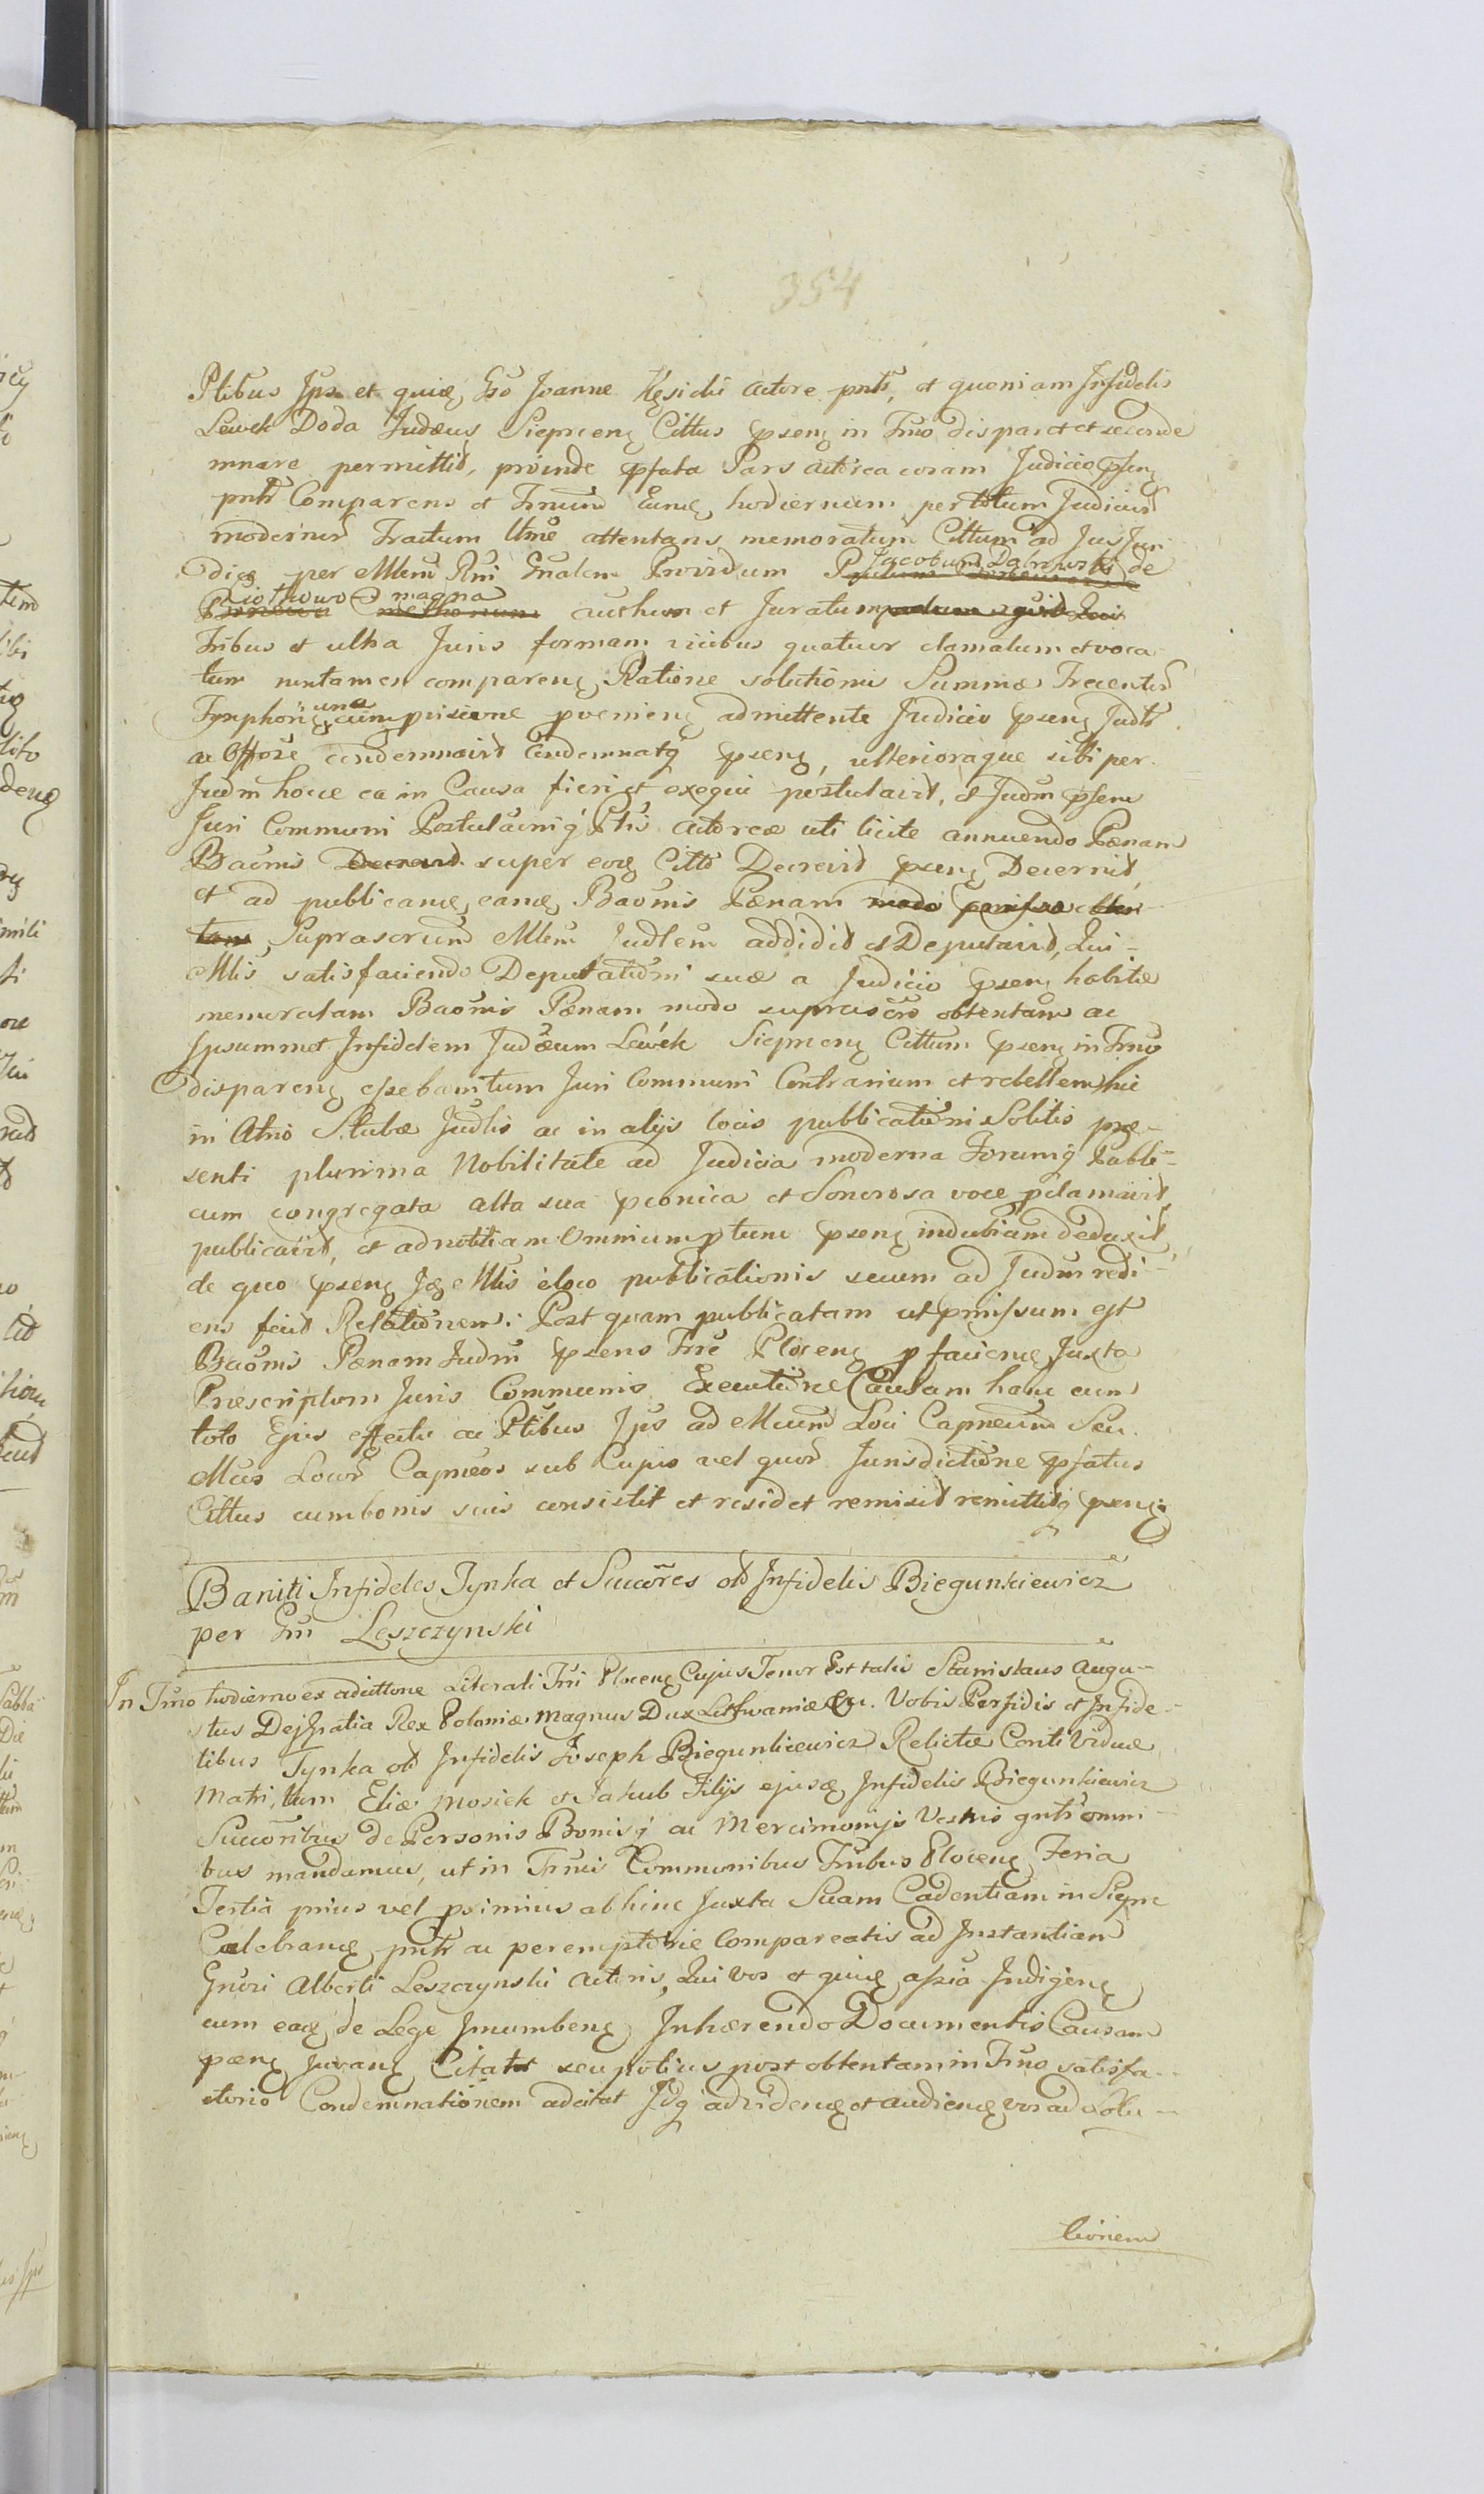 354
Ptibus Jps et quidę Gso Joanne Kęsicki actore pntr, et quoniam Infidelis
Lewek Doda Judæus Siepmceñ Cittus psens in Tmo disparet et se conde
mnare permittit, proinde pfata Pars actorea coram Judicio psenę
pntr Comparens et Tmum Eumę hodiernum per totum Judiciorũ
modernorũ Tractum ltme attentans memoratum Cittum ad Jus Juri
dicę per Mlem Rni Gnalem Providum Jacobum Dąbrowski de
magna authum et Juratum
Tribus et ultra Juris formam vicibus quatuor clamatum et voca
tum nontamen comparenę Ratione solutionis Summæ Trecentorũ
Tynphorũ una cum provenienę admittente Judicio psenę Judtr
ac Offose condemnavit Condemnatq psenę, ulterioraque sibi per
Judm hocce ea in Causa fieri et exequi postulavit, et Judm psens
Juri Communi Postulaoniq Ptis actoreæ uti licite annuendo Pænam
Baonis Decrevit super eoę Citto Decrevit psenę Decernit,
et ad publicanę, eamę Baonis Pænam modo
Suprascrum Mlem Judlem addidit et Deputavit, Qui
Mlis satisfaciendo Deputationi suæ a Judicio psenę habitæ
memoratam Baonis Pænam modo suprascro obtentam ac
Ipsummet Infidelem Judæum Lewek Siepmceñ Cittum psenę in Tmo
disparenę esse banitum Juri Communi Contrarium et rebellem hic
in Atrio Stubæ Judlis ac in alijs locis publicationi Solitis præ-
senti plurima Nobilitate ad Judicia moderna Forumq Publi-
cum congregata alta sua pconica et Sonorosa voce pclamavit
publicavit, et ad notitiam Omnium ptunc psenę indubiam deduxit,
de quo psenę Mlis e loco publicationis secum ad Judm redi-
ens fecit Relationem. Post quam publicatam ut pmissum est
Baonis Pænam Judm psens Trre Plocenę p facienę Juxta
Præscriptum Juris Communis Executione Causam hanc cum
toto Ejus effectu ac Ptibus Jps ad Mcum Loci Capneum Seu
Mcos Locorũ Capneos sub Cujus vel quorũ Jurisdictione pfatus
Cittus cum bonis suis consistit et residet remisit remittitq psenę
Baniti Infideles Tynka et Succores olĩ Infidelis Biegunkiewicz
per Gm Leszczynski
In Tmo hodierno ex adcittone Literali Trri Plocenę Cujus Tenor Est talis Stanislaus Augu-
stus Dei Gratia Rex Poloniæ Magnus Dux Lithuaniæ Etc. Vobis Perfidis et Infide-
libus Tynka olĩ Infidelis Joseph Biegunkiewicz Relictæ Conti Viduæ
Matri, tum Eliæ Mosiek et Jakub Filijs ejusdę Infidelis Biegunkiewicz
Succoribus de Personis Bonisq ac Mercimonijs Vestris gntr omni-
bus mandamus, ut in Trrmis Communibus Trribus Plocenę Feria
Tertia prius vel pximius ab hinc Juxta Suam Cadentiam in Siepre
Celebranę pntr ac peremptorie Compareatis ad Instantiam
Gnuri Alberti Leszczynski Actoris, Qui Vos et quidę assia Indigenę
cum eadę de Lege Jncumbenę Inhærendo Documentis Causam
psenę Juvanę Citatet seu potius post obtentam in Tmo satisfa-
ctorio Condemnationem adcitat Idq ad videnę et audienę vos ad solu-
tionem